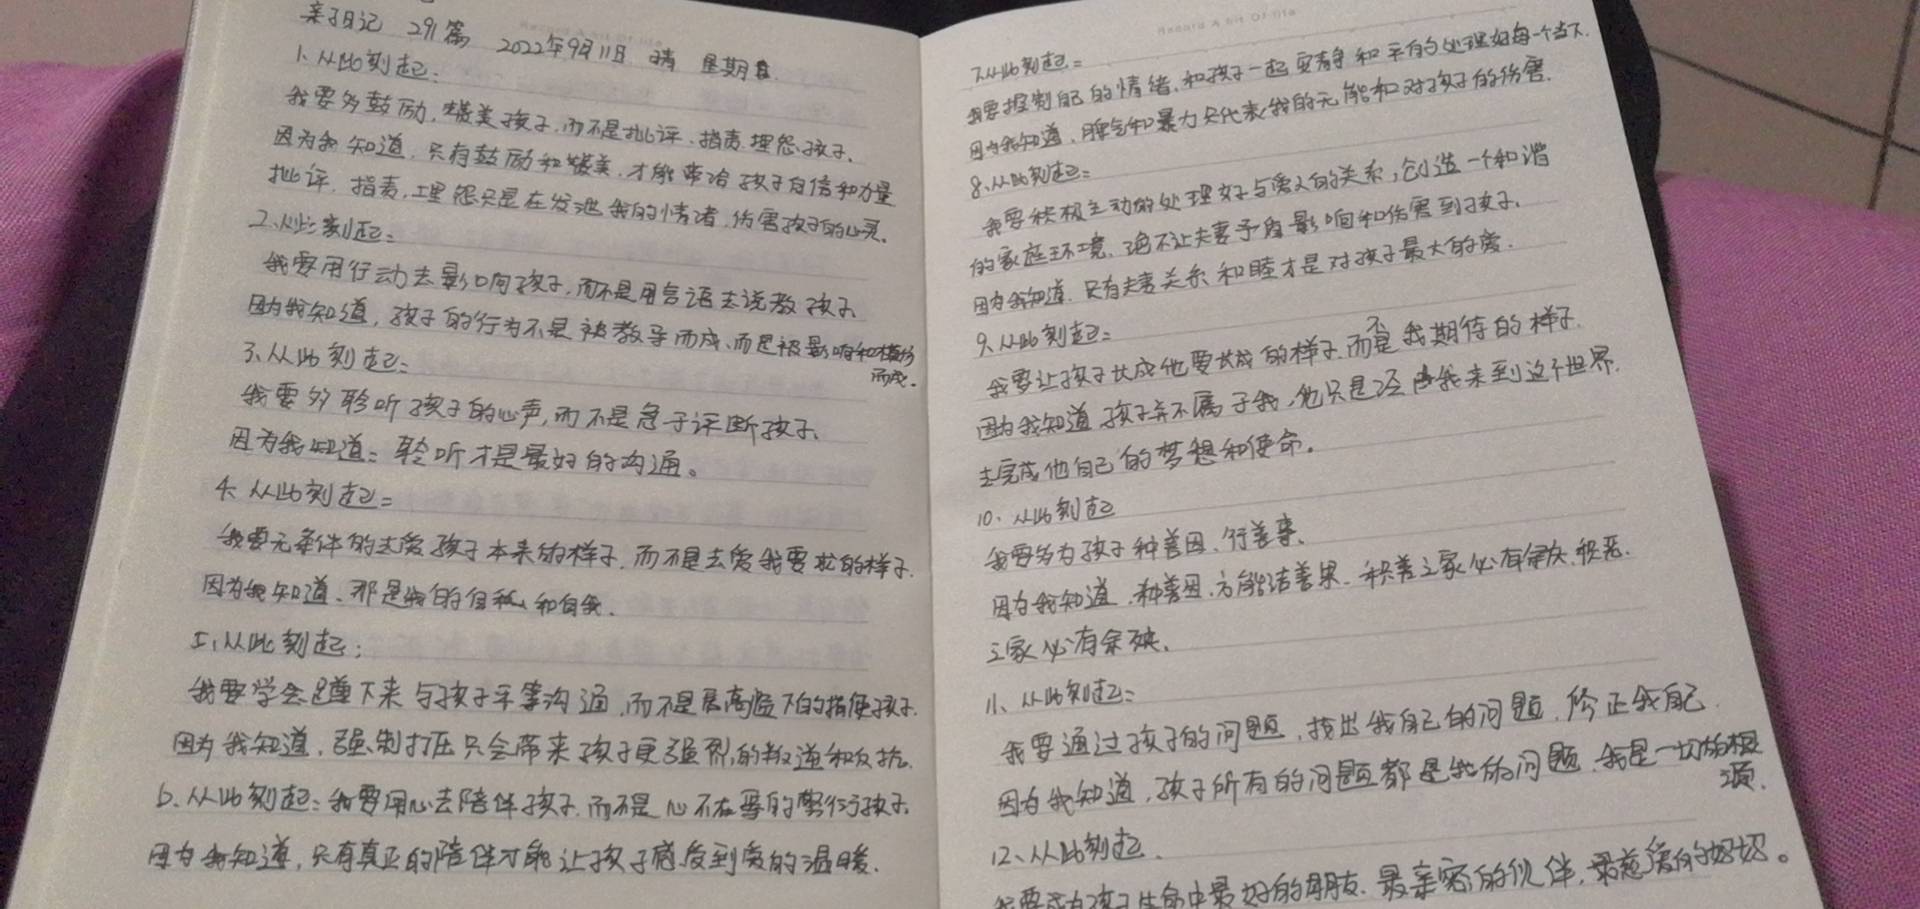 亲子日记 291篇 2022年9月11日 晴 星期日
1、从此刻起:
我要多鼓励,赞美孩子,而不是批评、指责、埋怨孩子、
因为我知道,只有鼓励和赞美,才能带给孩子自信和力量
批评、指责、埋怨只是在发泄我的情绪,伤害孩子的心灵。
2、从此刻起:
我要用行动去影响孩子,而不是用言语去说教孩子、
因为我知道,孩子的行为不是被教导而成、而是被影响和模仿
而成。
3、从此刻起:
我要多聆听孩子的心声,而不是急于评断孩子、
因为我知道:聆听才是最好的沟通。
4、从此刻起:
我要无条件的去爱孩子本来的样子,而不是去爱我要求的样子.
因为我知道、那是我的自私和自我.
5、从此刻起:
我要学会蹲下来与孩子平等沟通,而不是居高临下的指使孩子.
因为我知道,强制打压只会带来孩子更强烈的叛逆和反抗.
6、从此刻起:我要用心去陪伴孩子.而不是心不在焉的敷衍孩子.
因为我知道,只有真正的陪伴才能让孩子感受到爱的温暖.
Record A bit Of life
7、从此刻起:
我要控制自己的情绪.和孩子一起安静和平的处理好每一个当下.
因为我知道、脾气和暴力只代表我的无能和对孩子的伤害.
8、从此刻起:
我要积极主动的处理好与爱人的关系,创造一个和谐
的家庭环境、绝不让夫妻矛盾影响和伤害到孩子、
因为我知道、只有夫妻关系和睦才是对孩子最大的爱.
9、从此刻起:
我要让孩子长成他要长成的样子.而不是我期待的样子.
因为我知道 孩子并不属于我,他只是经由我来到这个世界.
去完成他自己的梦想和使命。
10、从此刻起
我要多为孩子种善因、行善事、
因为我知道、种善因、方能结善果、积善之家必有余庆.积恶.
之家必有余殃.
11、从此刻起:
我要通过孩子的问题,找出我自己的问题,修正我自己.
因为我知道,孩子所有的问题都是我的问题.我是一切的根
源.
12、从此刻起、
我要成为孩子生命中最好的朋友.最亲密的伙伴,最慈爱的妈妈。